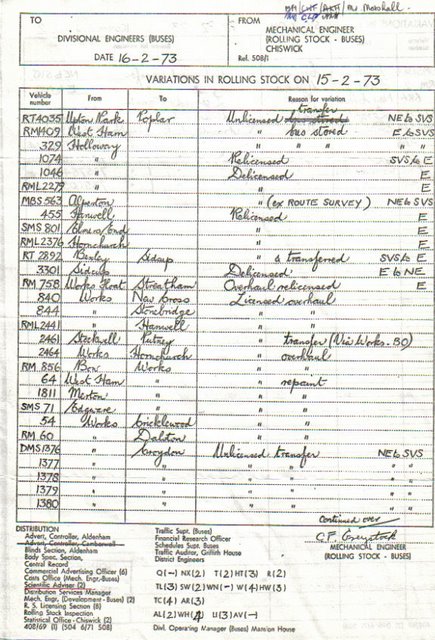 TO
DIVISIONAL ENGINEERS (BUSES)
DATE 16-2-73
FROM
MECHANICAL ENGINEER
(ROLLING STOCK - BUSES)
CHISWICK
Ref. 508/1
VARIATIONS IN ROLLING STOCK ON 15-2-73
Vehicle number From To Reason for variation
transfer
RT4035 Upton Park Poplar Unlicensed bus stored NE to SVS
RM1409 West Ham " bus stored E to SVS
329 Holloway " "
1074 " Relicensed SVS to E
1046 " Delicensed E
RML2279 " " E
MBS563 Alperton " (ex ROUTE SURVEY) NE to SVS
455 Hanwell Relicensed E
SMS801 Elmers End " E
RML2376 Hornchurch " E
RT2892 Bexley Sidcup " & transferred SVS to E
3301 Sidcup Delicensed E to NE
RM758 Works Float Streatham Overhaul relicensed E
840 Works New Cross Licensed overhaul
844 " Stonebridge " "
RML2441 " Hanwell " "
2461 Stockwell Putney " transfer (Via Works-50)
2464 Works Hornchurch " overhaul
RM856 Bow Works " "
64 West Ham " " repaint
1811 Merton " " "
SMS71 Edgware " " "
54 Works Cricklewood " "
RM60 " Dalston " "
DMS1376 " Croydon Unlicensed transfer NE to SVS
1377 " " " " "
1378 " " " " "
1379 " " " " "
1380 " " " " "
Continued over
DISTRIBUTION
Advert, Controller, Aldenham
Advert, Controller, Camberwell
Blinds Section, Aldenham
Body Spec, Section,
Central Record
Commercial Advertising Officer (6)
Costs Office (Mech. Engr-Buses)
Scientific Adviser (2)
Distribution Services Manager
Mech. Engr, (Development - Buses) (2)
R. S. Licensing Section (8)
Rolling Stock Inspection
Statistical Office - Chiswick (2)
408/69 (1) (504 6/71 508)
Traffic Supt. (Buses)
Financial Research Officer
Schedules Supt. Buses
Traffic Auditor, Griffith House
District Engineers
Q(-) NX(2) T(2) HT(3) R(2)
TL(3) SW(2) WN(-) W(4) HW(3)
TC(4) AR(3)
AL(2) WH(4) U(3) AV(-)
Divl. Operating Manager (Buses) Mansion House
MECHANICAL ENGINEER
(ROLLING STOCK - BUSES)